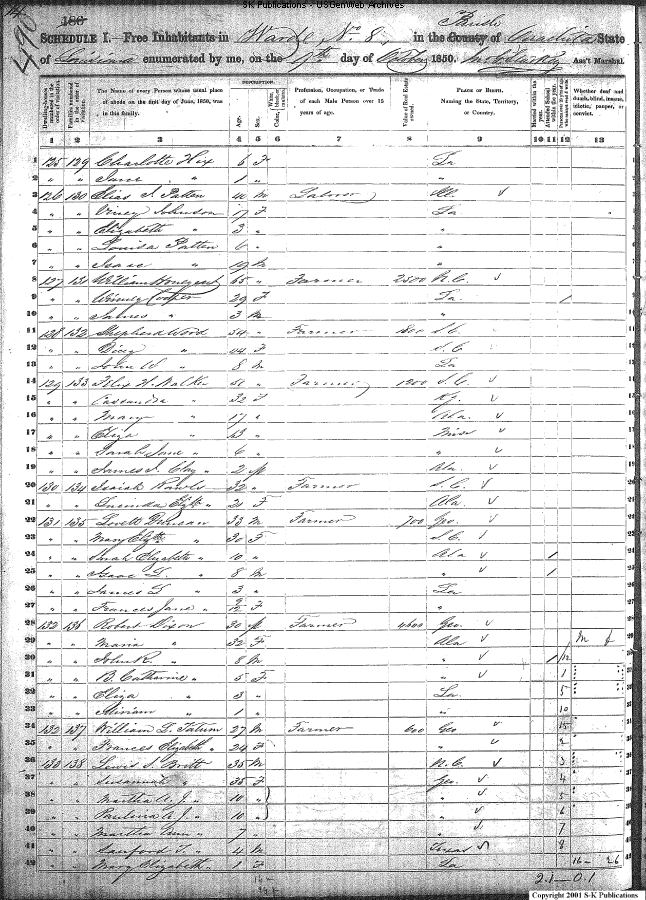 S-K Publications - USGenWeb Archives
490
186
SCHEDULE I.—Free Inhabitants in Ward No. 8, in the County Parish of Ouachita State
of Louisiana enumerated by me, on the 9th day of October 1850. Ass't Marshal.
Dwelling-houses numbered in the order of visitation.
Families numbered in the order of visitation.
The Name of every Person whose usual place of abode on the first day of June, 1850, was in this family.
DESCRIPTION.
Age.
Sex.
Color, White, black, or mulatto.
Profession, Occupation, or Trade of each Male Person over 15 years of age.
Value of Real Estate owned.
PLACE OF BIRTH. Naming the State, Territory, or Country.
Married within the year.
Attended School within the year.
Whether deaf and dumb, blind, insane, idiotic, pauper, or convict.
1 2 3 4 5 6 7 8 9 10 11 12 13
1 125 129 Charlotte Hix 6 F La
2 " " Jane " 1 " "
3 126 130 Elias S. Patten 40 M Laborer Al v
4 " " Johnson 17 F La
5 " " Elizabeth " 3 " "
6 " " Louisa Patten 6 " "
7 " " Isaac " 19 M "
8 127 131 William Honeycut 65 " Farmer 2500 N.C. v
9 " " Cooper 29 F La. 1
10 " " James " 3 M "
11 128 132 Shepherd Wood 54 " Farmer 1800 S.C.
12 " " Dicy " 44 F S.C.
13 " " John W " 8 M La
14 129 133 Felix H. Walker 51 " Farmer 1200 S.C. v
15 " " Cassandra " 32 F Ky. v
16 " " Mary " 17 " Ala. v
17 " " Eliza " 13 " Miss v
18 " " Sarah Jane " 6 " " v
19 " " James S. Clay " 2 M Ala. v
20 130 134 Isaiah Rawls 32 " Farmer S.C. v
21 " " 21 F Ala. v
22 131 135 Lovett Duncan 33 M Farmer 700 Geo. v
23 " " Mary Elizth " 30 F S.C.
24 " " Sarah Elizabeth " 10 " Ala v 1
25 " " Isaac L. " 8 M " v 1
26 " " James L " 3 " La
27 " " Frances Jane " F "
28 132 136 Robert Dixon 30 M Farmer 4600 Geo. v
29 " " Maria " 32 F Ala v M f
30 " " John R. " 8 M " v 1
31 " " B. Catharine " 5 F " v 1
32 " " Eliza " 3 " La 5
33 " " Miriam " 1 " " 10
34 132 137 William L. Tatum 27 M Farmer 600 Geo v 15
35 " " Frances Elizabeth " 24 F " v 2
36 133 138 Lewis S. Brett 35 M N.C. v 3
37 " " Susannah " 35 F Geo. v 4
38 " " Martha A. J. " 10 " " v 5
39 " " Paulina A. J. " 10 " " v 6
40 " " Martha Ann " 7 " " v 7
41 " " Sanford T. " 4 M Texas v 8
42 " " Mary Elizabeth " 1 F La 16– 26
16–
21–01
Copyright 2001 S-K Publications